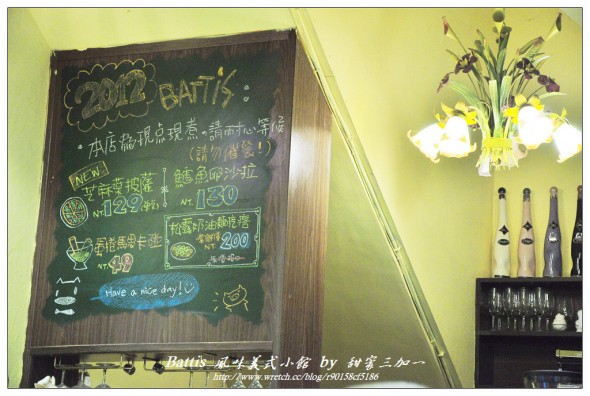 2012 BATTIS:
·本店為現点現煮。請耐心等候
(請勿催餐!)
NEW
芝麻葉披薩
NT.129
鱈魚卵沙拉
NT.130
NT.49
松露奶油麵疙瘩
NT 200
Have a nice day!
Battis 風味美式小館 by 甜蜜三加一
http://www.wretch.cc/blog/r90158cf5186